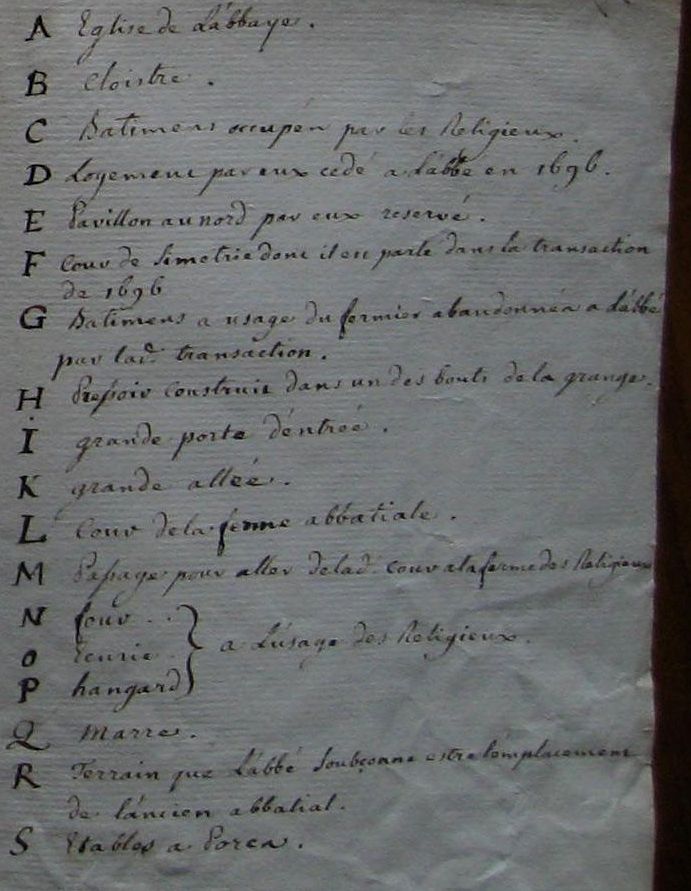 A Eglise de L'abbaye.
B Cloistre.
C Batimens occupés par les Religieux.
D Logement par eux cedé a L'abbé en 1696.
E Pavillon au nord par eux reservé.
F Cour de Simetrie dont il est parlé dans la transaction
de 1696
G Batimens a usage du fermier abandonnés a L'abbé
par lad. transaction.
H Pressoir construit dans un des bouts de la grange.
I grande porte d'entrée.
K grande allée.
L Cour de la ferme abbatiale.
M Passage pour aller de lad. cour a la ferme des Religieux
N four ..
O Ecurie . } a L'usage des Religieux.
P hangard
Q Marre.
R Terrain que L'abbé soubçonne estre l'emplacement
de l'ancien abbatial.
S Etables a Porcs.